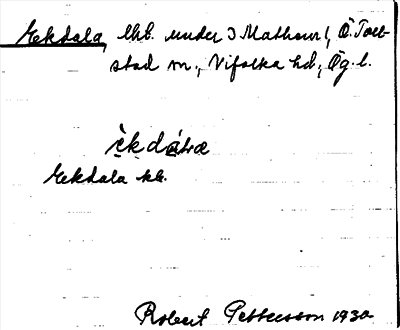 Ekdala, lht. under 3 Mathem 1, Ö. Tol-
stad sn., Vifolka hd., Ög. l.
èkdáɫa
Ekdala kb.
Robert Pettersson 1930